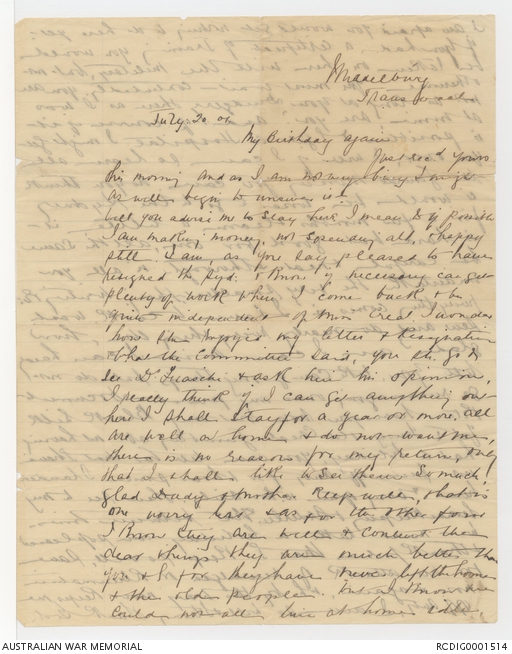 Middelburg
Transvaal
July 20 00
My Birthday again
Just rec'd yours
this morning and as I am not very busy I might
as well begin to answer it.
well you advise me to stay here I mean to if possible
I am making money, not spending all, & happy
still I am, as you say pleased to have
resigned the Syd. & know if necessary can get
plenty of work when I come back & be
quite independent of Miss I wonder
how she enjoyed my letter & resignation
& what the Committee said, you sh. go &
see Dr Fiaschi & ask him his opinion,
I really think if I can get anything out
here I shall stay for a year or more. all
are well at home & do not want me,
there is no reason for my return, only
that I shall like to see them so much
glad Dady & Mother keep well, that is
one worry less & as for the other four
I know they are well & content the
dear things they are much better than
you & I for they have never left the home
& the old people. but I know we
could not all live at home idle,
AUSTRALIAN WAR MEMORIAL
RCDIG0001514